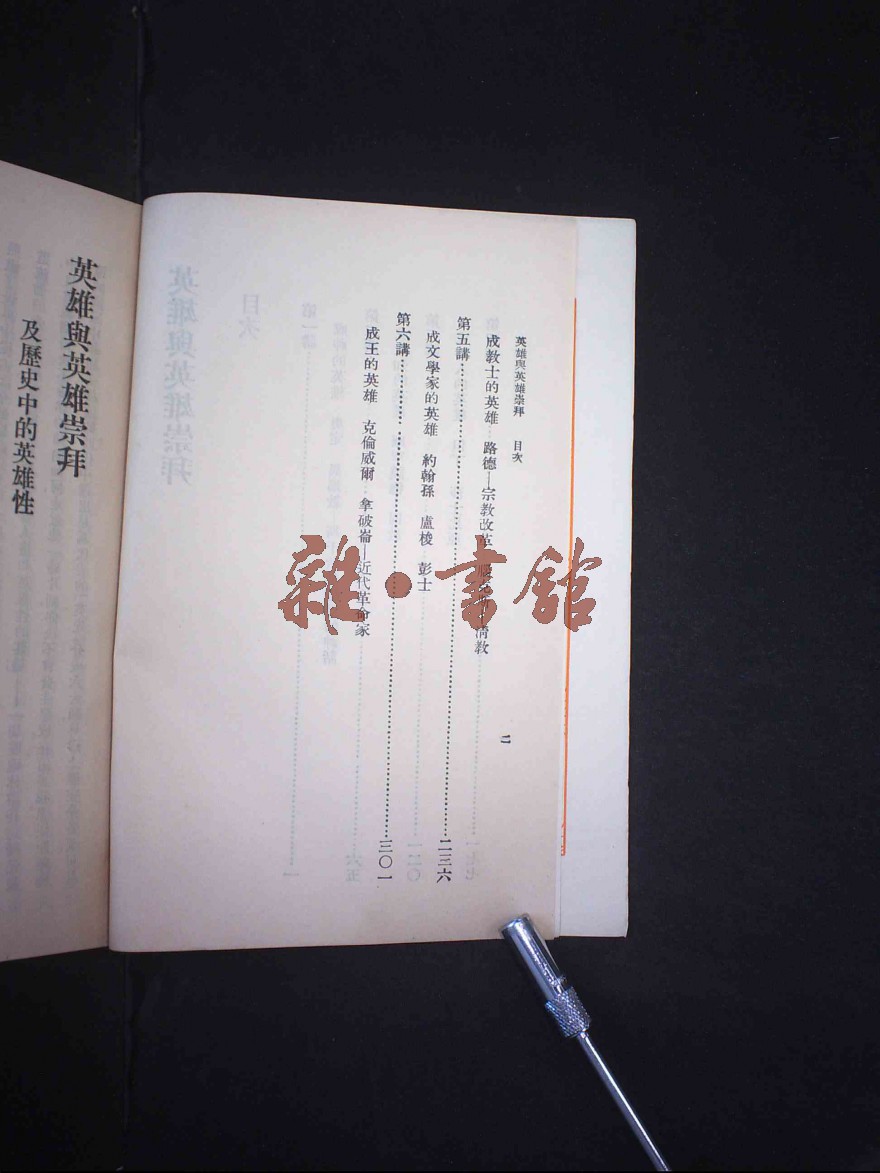 英雄與英雄崇拜　目次
成教士的英雄　路德—宗教改革　清教
第五講……二三六
成文學家的英雄　約翰孫　盧梭　彭士
第六講……三〇一
成王的英雄　克倫威爾　拿破崙—近代革命家
二
英雄與英雄崇拜
及歷史中的英雄性
雜·書館